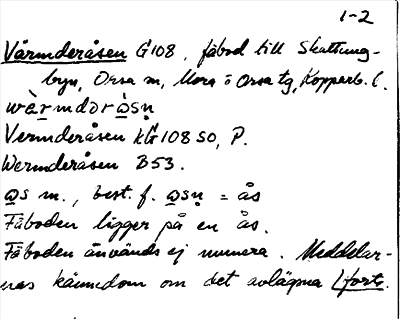 1-2
Värmderåsen G108, fäbod till Skattung-
byn, Orsa sn, Mora o Orsa tg, Kopparb. l.
wèrmdərå̀sn̥
Vermderåsen kG108 SO, P.
Wermderåsen B53.
ås m., best. f. åsn̥ = ås
Fäboden ligger på en ås.
Fäboden används ej numera. Meddelar-
nas kännedom om det avlägsna (forts.